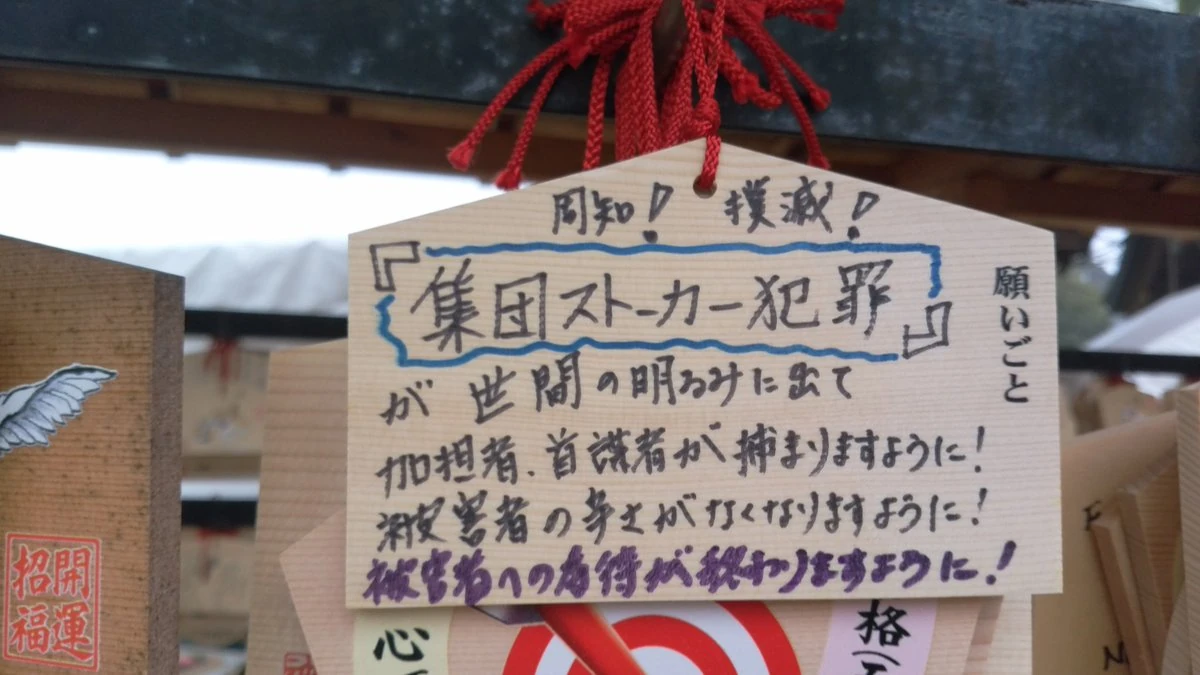 周知! 撲滅!
『集団ストーカー犯罪』
が世間の明るみに出て
加担者、首謀者が捕まりますように!
被害者の辛さがなくなりますように!
被害者への虐待が終わりますように!
願いごと
開運
招福
心
格
F
N